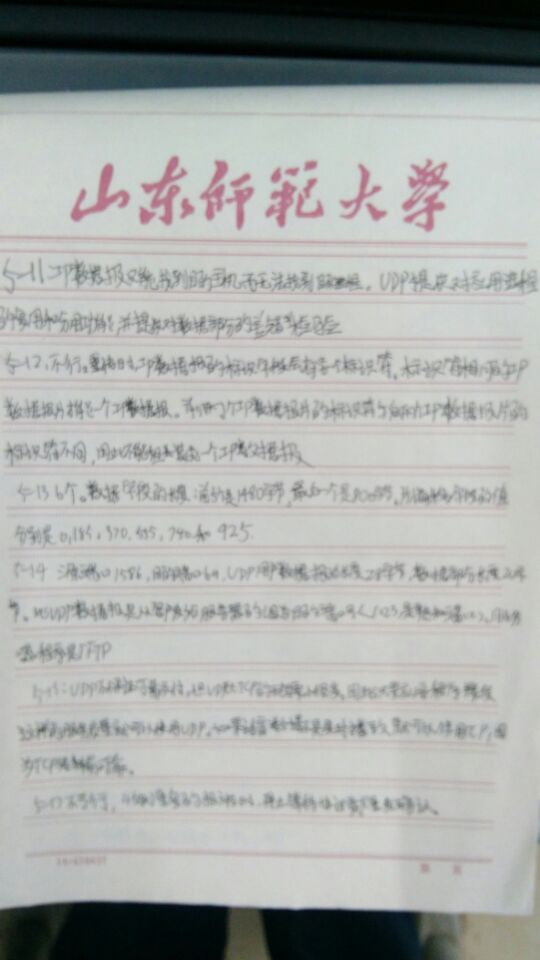 山东师范大学
5-11 IP数据报只能找到目的主机而无法找到目的进程。UDP提供对应用进程
的复用和分用功能,并提供对数据部分的差错检验
5-12.不行。重传时,IP数据报的标识字段会有另一个标识符。标识符相同的IP
数据报片才能组成一个IP数据报。前两个IP数据报片的标识符与后两个IP数据报片的
标识符不同,因此不能组装成一个IP数据报
5-13 6个。数据字段的长度:前5个是1480字节,最后一个是800字节。片偏移字段的值
分别是0,185,370,555,740和925.
5-14 源端口1586,目的端口69,UDP用户数据报总长度28字节,数据部分长度20字
节。此UDP数据报是从客户发给服务器(因为目的端口号<1023,是熟知端口)。服务
器程序是TFTP
5-15:UDP不保证可靠交付,但UDP比TCP的开销小很多。因此只要应用程序接受
这样的服务质量就可以使用UDP。如果话音数据
为TCP
5-17 不可